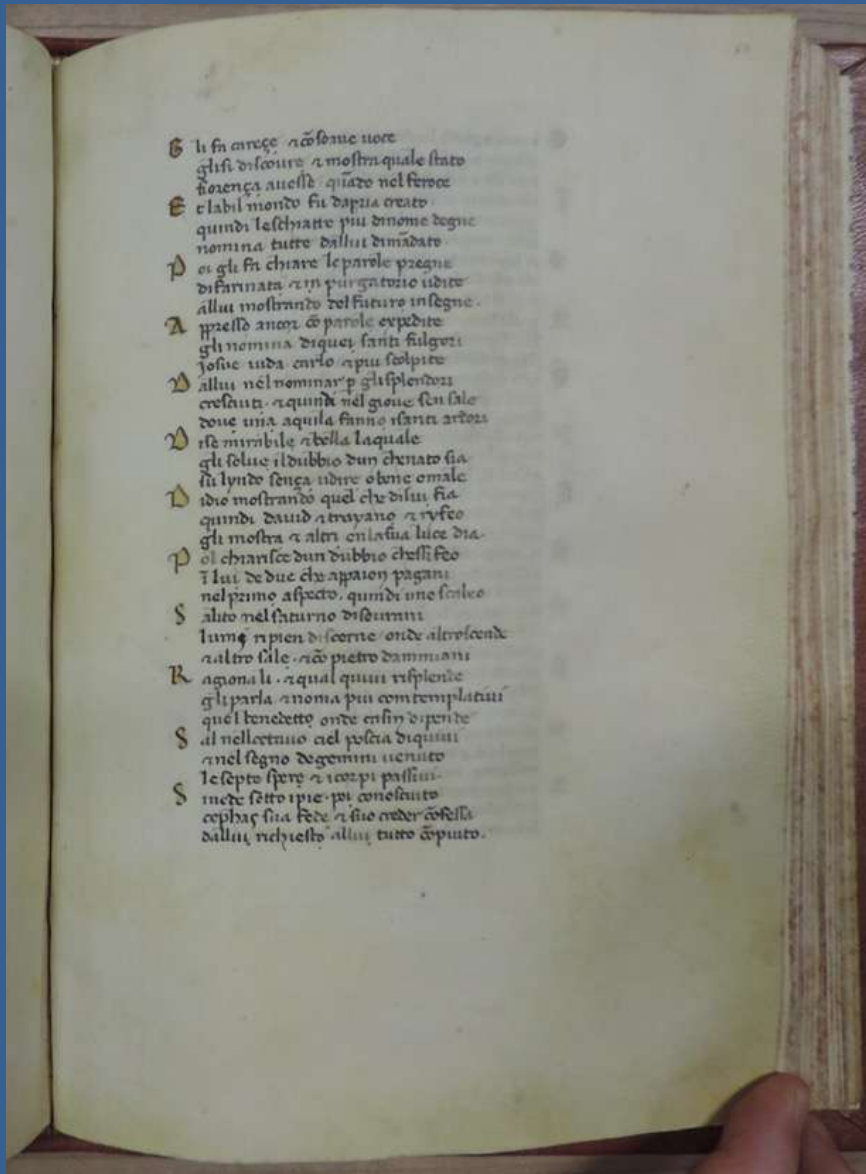 G li fa careçe ⁊ cō soave voce
gli si discovre ⁊ mostra quale stato
fiorença avesse quādo nel feroce
E t labil mondo fu da pria creato
quindi le schiatte piu di nome degne
nomina tutte dallui dimādato
P oi gli fa chiare le parole pregne
di farinata ⁊ in purgatorio udite
allui mostrando del futuro insegne.
A ppresso ancor cō parole expedite
gli nomina di quei santi fulgori
Josue iuda carlo ⁊ piu scolpite
D allui nel nominar p gli splendori
cresciuti. ⁊ quindi nel giove sen sale
dove una aquila fanno i santi ardori
D ise mirabile ⁊ bella la quale
gli solve il dubbio dun che nato sia
su lyndo sença udire o bene o male
D idio mostrando quel che di lui fia
quindi david ⁊ trayano ⁊ ryfeo
gli mostra ⁊ altri en la sua luce dia.
P ol chiarisce dun dubbio chessi feo
ī lui de due che apparon pagani
nel primo aspecto. quindi uno scaleo
S alito nel saturno di sovrani
lumi ripien discerne onde altro scende
⁊ altro sale. ⁊ cō pietro dammiani
R agiona li. ⁊ qual quivi risplende
gli parla ⁊ nomia piu comtemplativi
quel benedetto onde casin dipende
S al nell octavo ciel poscia di quivi
⁊ nel segno de gemini venuto
le septe spere ⁊ i corpi passivi.
S i vede sotto i pie. poi conosciuto
cephas sua fede ⁊ suo creder cōfessa
dallui richiesto allui tutto cōpiuto.